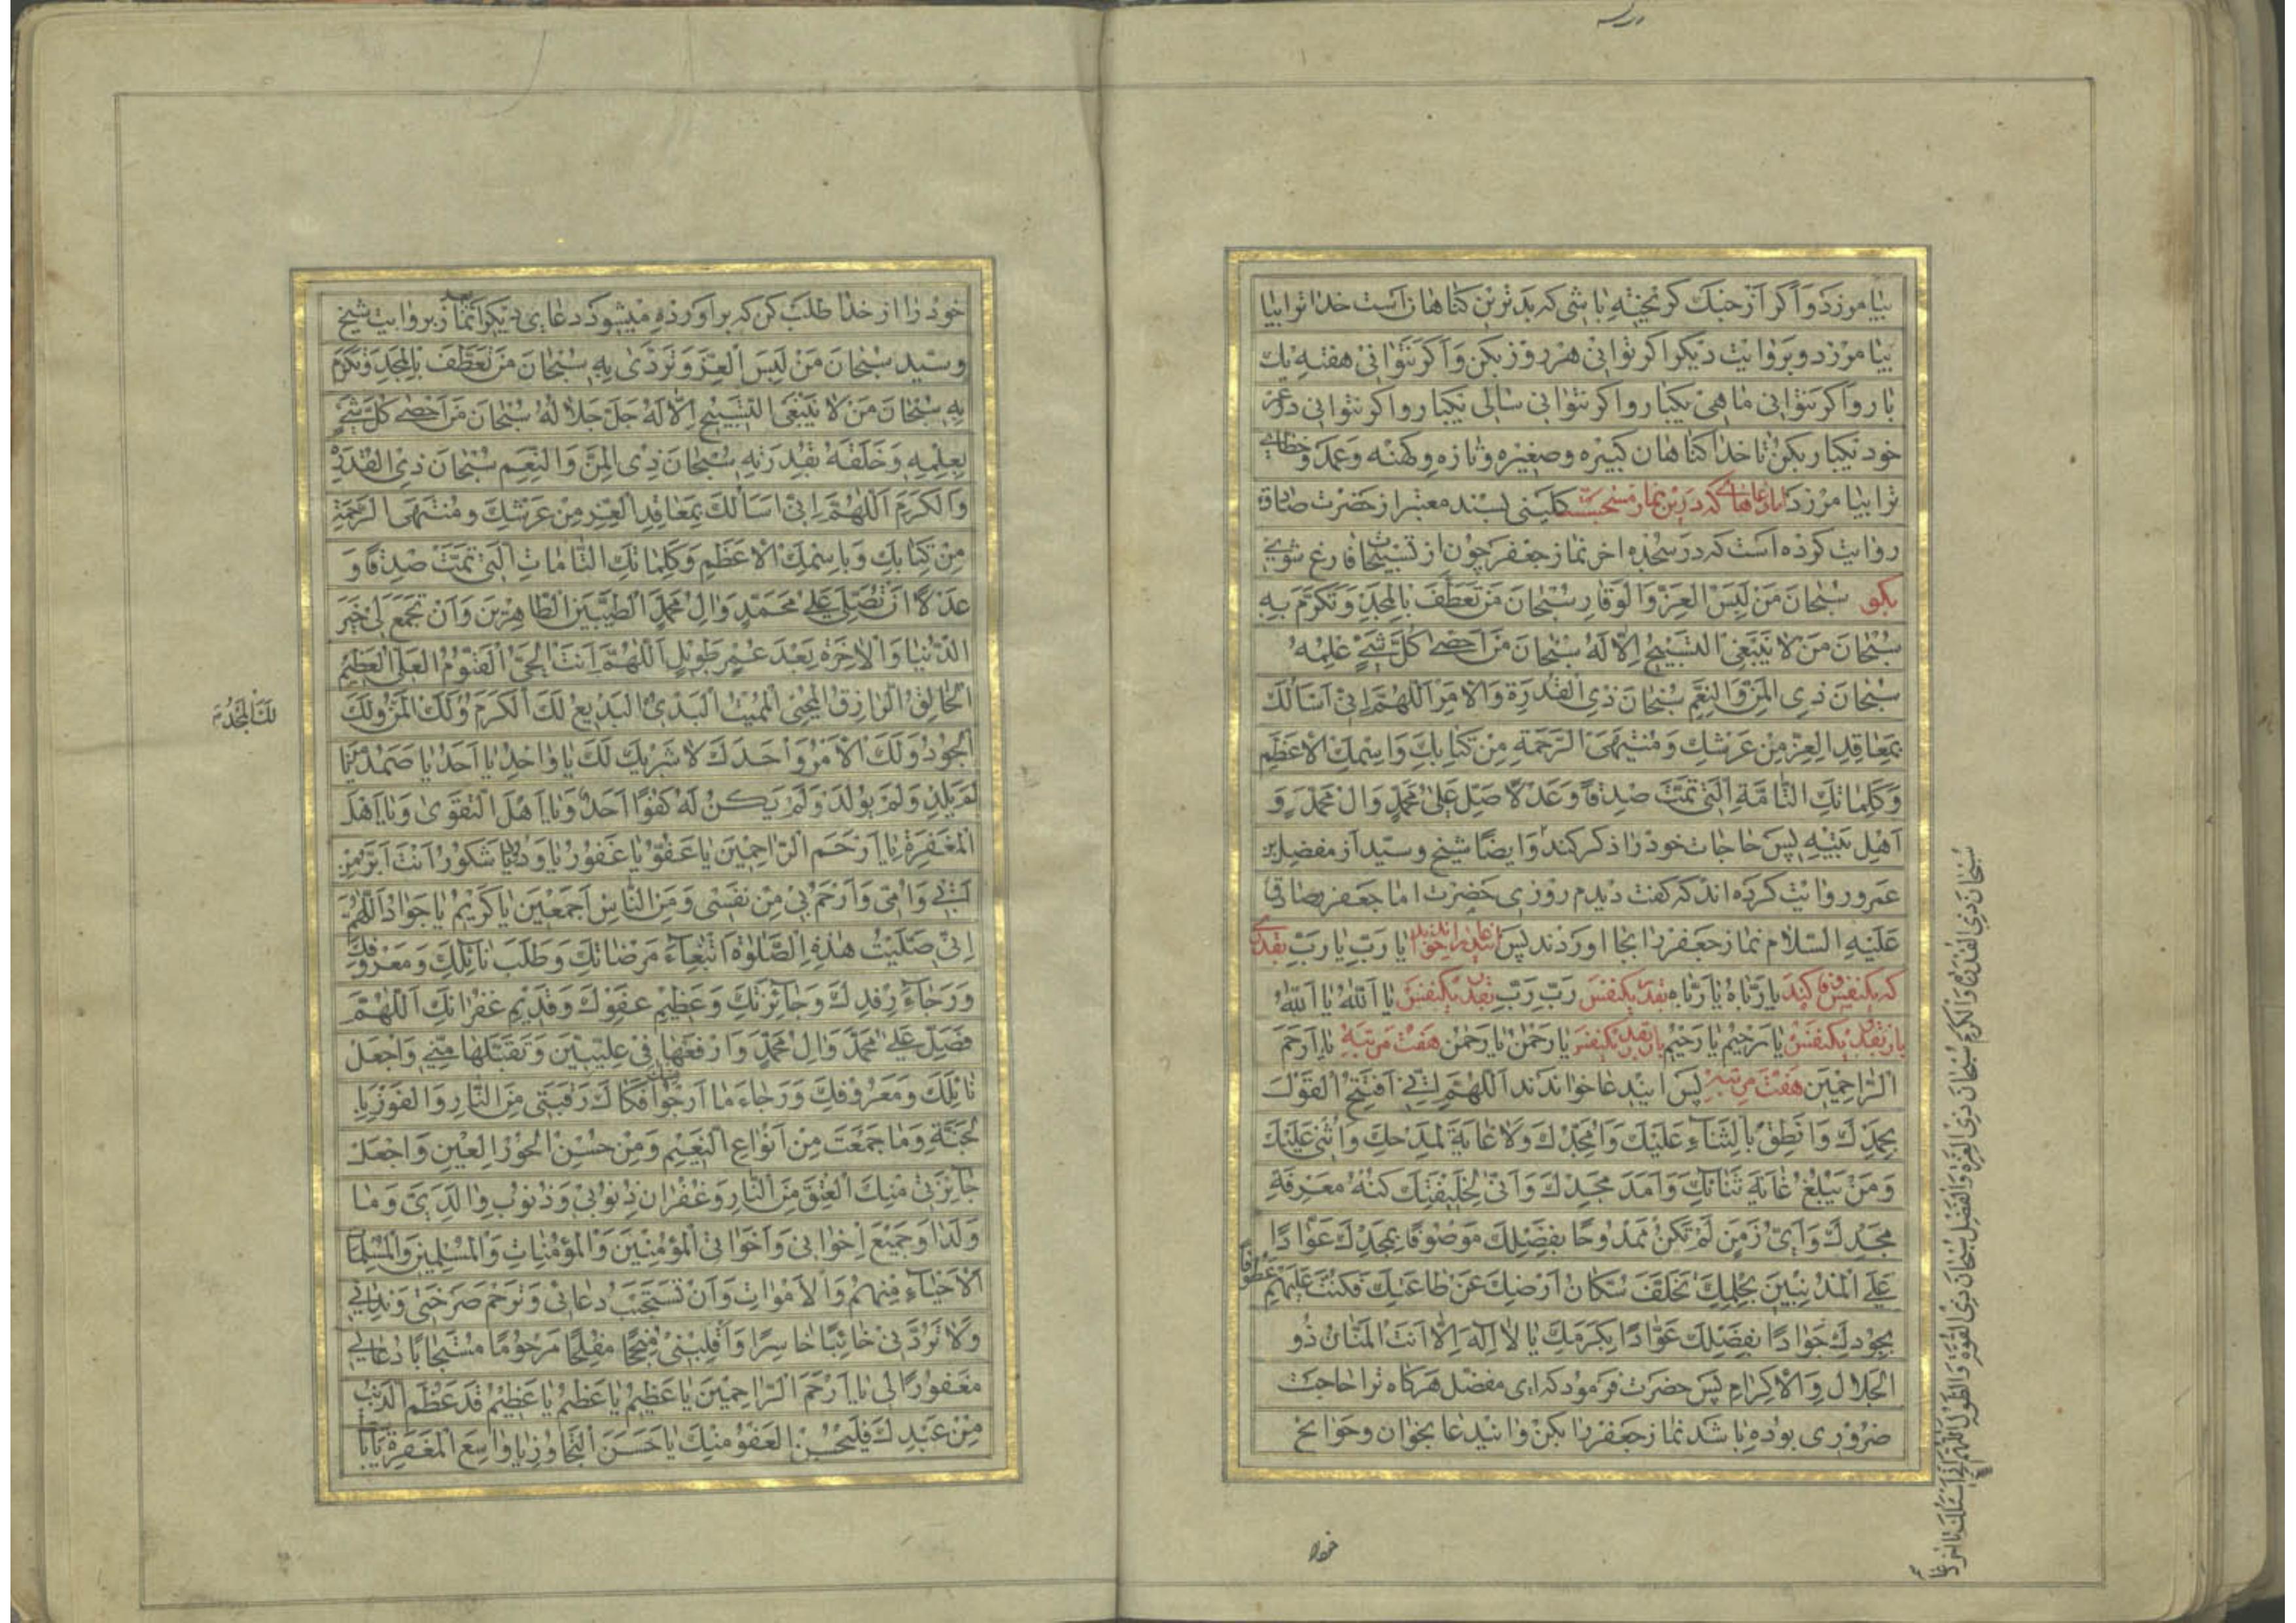 بیامرزد و اگر از جنک کریخته باشی که بدترین کناهان است خدا ترا بیا
بیامرزد و بروایت دیکر اکر توانی هر روز بکن و اکر نتوانی هفته یک
بار و اکر نتوانی ماهی یکبار و اکر نتوانی سالی یکبار و اکر نتوانی در عمر
خود یکبار بکن تا خدا کناهان کبیره و صغیره و تازه و کهنه و عمد و خطای
ترا بیامرزد اما دعاهای که در این نماز مستحبست کلینی بسند معتبر از حضرت صادق
روایت کرده است که در سجده اخر نماز جعفر چون از تسبیحات فارغ شوی
بکو سُبْحانَ مَنْ لَبِسَ الْعِزَّ وَالْوَقارَ سُبْحانَ مَنْ تَعَطَّفَ بِالْمَجْدِ وَتَكَرَّمَ بِهِ
سُبْحانَ مَنْ لا يَنْبَغِي التَّسْبيحُ اِلّا لَهُ سُبْحانَ مَنْ اَحْصى كُلَّ شَيْءٍ عِلْمُهُ
سُبْحانَ ذِي الْمَنِّ وَالنِّعَمِ سُبْحانَ ذِي الْقُدْرَةِ وَالْاَمْرِ اَللّهُمَّ اِنّي اَسْاَلُكَ
بِمَعاقِدِ الْعِزِّ مِنْ عَرْشِكَ وَمُنْتَهَى الرَّحْمَةِ مِنْ كِتابِكَ وَاسْمِكَ الْاَعْظَمِ
وَكَلِماتِكَ التّامَّةِ الَّتي تَمَّتْ صِدْقًا وَعَدْلًا صَلِّ عَلى مُحَمَّدٍ وَالِ مُحَمَّدٍ وَ
اَهْلِ بَيْتِهِ پس حاجات خود را ذکر کند و ایضًا شیخ و سیّد از مفضل بن
عمرو روایت کرده اند که کفت دیدم روزی حضرت امام جعفر صادق
علیه السّلام نماز جعفر را بجا اوردند پس ایندعا را خواندند یا رَبِّ یا رَبِّ بقدری
که یکنفس وفا کند یا رَبّاهُ یا رَبّاهُ بقدر یکنفس رَبِّ رَبِّ بقدر یکنفس یا اَللّهُ یا اَللّهُ
باز بقدر یکنفس یا رَحیمُ یا رَحیمُ باز بقدر یکنفس یا رَحْمنُ یا رَحْمنُ هفت مرتبه یا اَرْحَمَ
الرّاحِمینَ هفت مرتبه پس ایندعا خواندند اَللّهُمَّ اِنّي اَفْتَتِحُ الْقَوْلَ
بِحَمْدِكَ وَاَنْطِقُ بِالثَّناءِ عَلَيْكَ وَاُمَجِّدُكَ وَلا غايَةَ لِمَدْحِكَ وَاُثْني عَلَيْكَ
وَمَنْ يَبْلُغُ غايَةَ ثَنائِكَ وَاَمَدَ مَجْدِكَ وَاَنّى لِخَليقَتِكَ كُنْهُ مَعْرِفَةِ
مَجْدِكَ وَاَيُّ زَمَنٍ لَمْ تَكُنْ مَمْدُوحًا بِفَضْلِكَ مَوْصُوفًا بِمَجْدِكَ عَوّادًا
عَلَى الْمُذْنِبينَ بِحِلْمِكَ تَخَلَّفَ سُكّانُ اَرْضِكَ عَنْ طاعَتِكَ فَكُنْتَ عَلَيْهِمْ عَطُوفًا
بِجُودِكَ جَوادًا بِفَضْلِكَ عَوّادًا بِكَرَمِكَ يا لا اِلهَ اِلّا اَنْتَ الْمَنّانُ ذُو
الْجَلالِ وَالْاِكْرامِ پس حضرت فرمود که ای مفضل هرکاه ترا حاجت
ضروری بوده باشد نماز جعفر را بکن و ایندعا بخوان و حوایج
سُبْحانَ ذِي الْقُدْرَةِ وَالْكَرَمِ سُبْحانَ ذِي الْعِزَّةِ وَالْفَضْلِ سُبْحانَ ذِي الْقُوَّةِ وَالطَّوْلِ اَللّهُمَّ اِنّي اَسْئَلُكَ
خود را از خدا طلب کن که براورده میشود دعای دیکر بعد از نماز بروایت شیخ
و سیّد سُبْحانَ مَنْ لَبِسَ الْعِزَّ وَتَرَدّى بِهِ سُبْحانَ مَنْ تَعَطَّفَ بِالْمَجْدِ وَتَكَرَّمَ
بِهِ سُبْحانَ مَنْ لا يَنْبَغِي التَّسْبيحُ اِلّا لَهُ جَلَّ جَلالُهُ سُبْحانَ مَنْ اَحْصى كُلَّ شَيْءٍ
بِعِلْمِهِ وَخَلَقَهُ بِقُدْرَتِهِ سُبْحانَ ذِي الْمَنِّ وَالنِّعَمِ سُبْحانَ ذِي الْقُدْرَةِ
وَالْكَرَمِ اَللّهُمَّ اِنّي اَسْاَلُكَ بِمَعاقِدِ الْعِزِّ مِنْ عَرْشِكَ وَمُنْتَهَى الرَّحْمَةِ
مِنْ كِتابِكَ وَبِاسْمِكَ الْاَعْظَمِ وَكَلِماتِكَ التّامّاتِ الَّتي تَمَّتْ صِدْقًا وَ
عَدْلًا اَنْ تُصَلِّيَ عَلى مُحَمَّدٍ وَالِ مُحَمَّدٍ الطَّيِّبينَ الطّاهِرينَ وَاَنْ تَجْمَعَ لي خَيْرَ
الدُّنْيا وَالْاخِرَةِ بَعْدَ عُمْرٍ طَويلٍ اَللّهُمَّ اَنْتَ الْحَيُّ الْقَيُّومُ الْعَلِيُّ الْعَظيمُ
الْخالِقُ الرّازِقُ الْمُحْيِي الْمُميتُ الْبَديءُ الْبَديعُ لَكَ الْكَرَمُ وَلَكَ الْمَنُّ وَلَكَ
الْجُودُ وَلَكَ الْاَمْرُ وَحْدَكَ لا شَريكَ لَكَ يا واحِدُ يا اَحَدُ يا صَمَدُ يا مَنْ
لَمْ يَلِدْ وَلَمْ يُولَدْ وَلَمْ يَكُنْ لَهُ كُفُوًا اَحَدٌ وَيا اَهْلَ التَّقْوى وَيا اَهْلَ
الْمَغْفِرَةِ يا اَرْحَمَ الرّاحِمينَ يا عَفُوُّ يا غَفُورُ يا وَدُودُ يا شَكُورُ اَنْتَ اَبَرُّ مِنْ
اَبي وَاُمّي وَاَرْحَمُ بي مِنْ نَفْسي وَمِنَ النّاسِ اَجْمَعينَ يا كَريمُ يا جَوادُ اَللّهُمَّ
اِنّي صَلَّيْتُ هذِهِ الصَّلوةَ ابْتِغاءَ مَرْضاتِكَ وَطَلَبَ نائِلِكَ وَمَعْرُوفِكَ
وَرَجاءَ رِفْدِكَ وَجائِزَتِكَ وَعَظيمِ عَفْوِكَ وَقَديمِ غُفْرانِكَ اَللّهُمَّ
فَصَلِّ عَلى مُحَمَّدٍ وَالِ مُحَمَّدٍ وَارْفَعْها في عِلِّيّينَ وَتَقَبَّلْها مِنّي وَاجْعَلْ
نائِلَكَ وَمَعْرُوفَكَ وَرَجاءَ ما اَرْجُوا مِنْكَ فَكاكَ رَقَبَتي مِنَ النّارِ وَالْفَوْزَ بِا
لْجَنَّةِ وَما جَمَعْتَ مِنْ اَنْواعِ النَّعيمِ وَمِنْ حُسْنِ الْحُورِ الْعينِ وَاجْعَلْ
جائِزَتي مِنْكَ الْعِتْقَ مِنَ النّارِ وَغُفْرانَ ذُنُوبي وَذُنُوبِ والِدَيَّ وَما
وَلَدا وَجَميعَ اِخْواني وَاَخَواتي الْمُؤْمِنينَ وَالْمُؤْمِناتِ وَالْمُسْلِمينَ وَالْمُسْلِماتِ
الْاَحْياءِ مِنْهُمْ وَالْاَمْواتِ وَاَنْ تَسْتَجيبَ دُعائي وَتَرْحَمَ صَرْخَتي وَنِدائي
وَلا تَرُدَّني خائِبًا خاسِرًا وَاقْلِبْني مُنْجِحًا مُفْلِحًا مَرْحُومًا مُسْتَجابًا دُعائي
مَغْفُورًا لي يا اَرْحَمَ الرّاحِمينَ يا عَظيمُ يا عَظيمُ يا عَظيمُ قَدْ عَظُمَ الذَّنْبُ
مِنْ عَبْدِكَ فَلْيَحْسُنِ الْعَفْوُ مِنْكَ يا حَسَنَ التَّجاوُزِ يا واسِعَ الْمَغْفِرَةِ يا با
لَكَ الْمَجْدُ